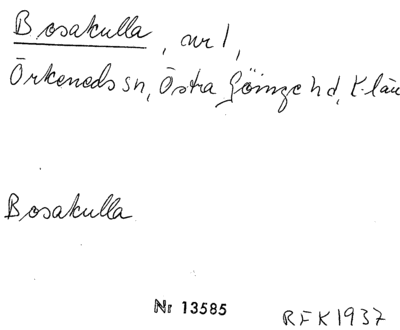 Bosakulla, nr 1,
Örkeneds sn, Östra Göinge hd, K-län
Bosakulla
Nr 13585
RFK 1937